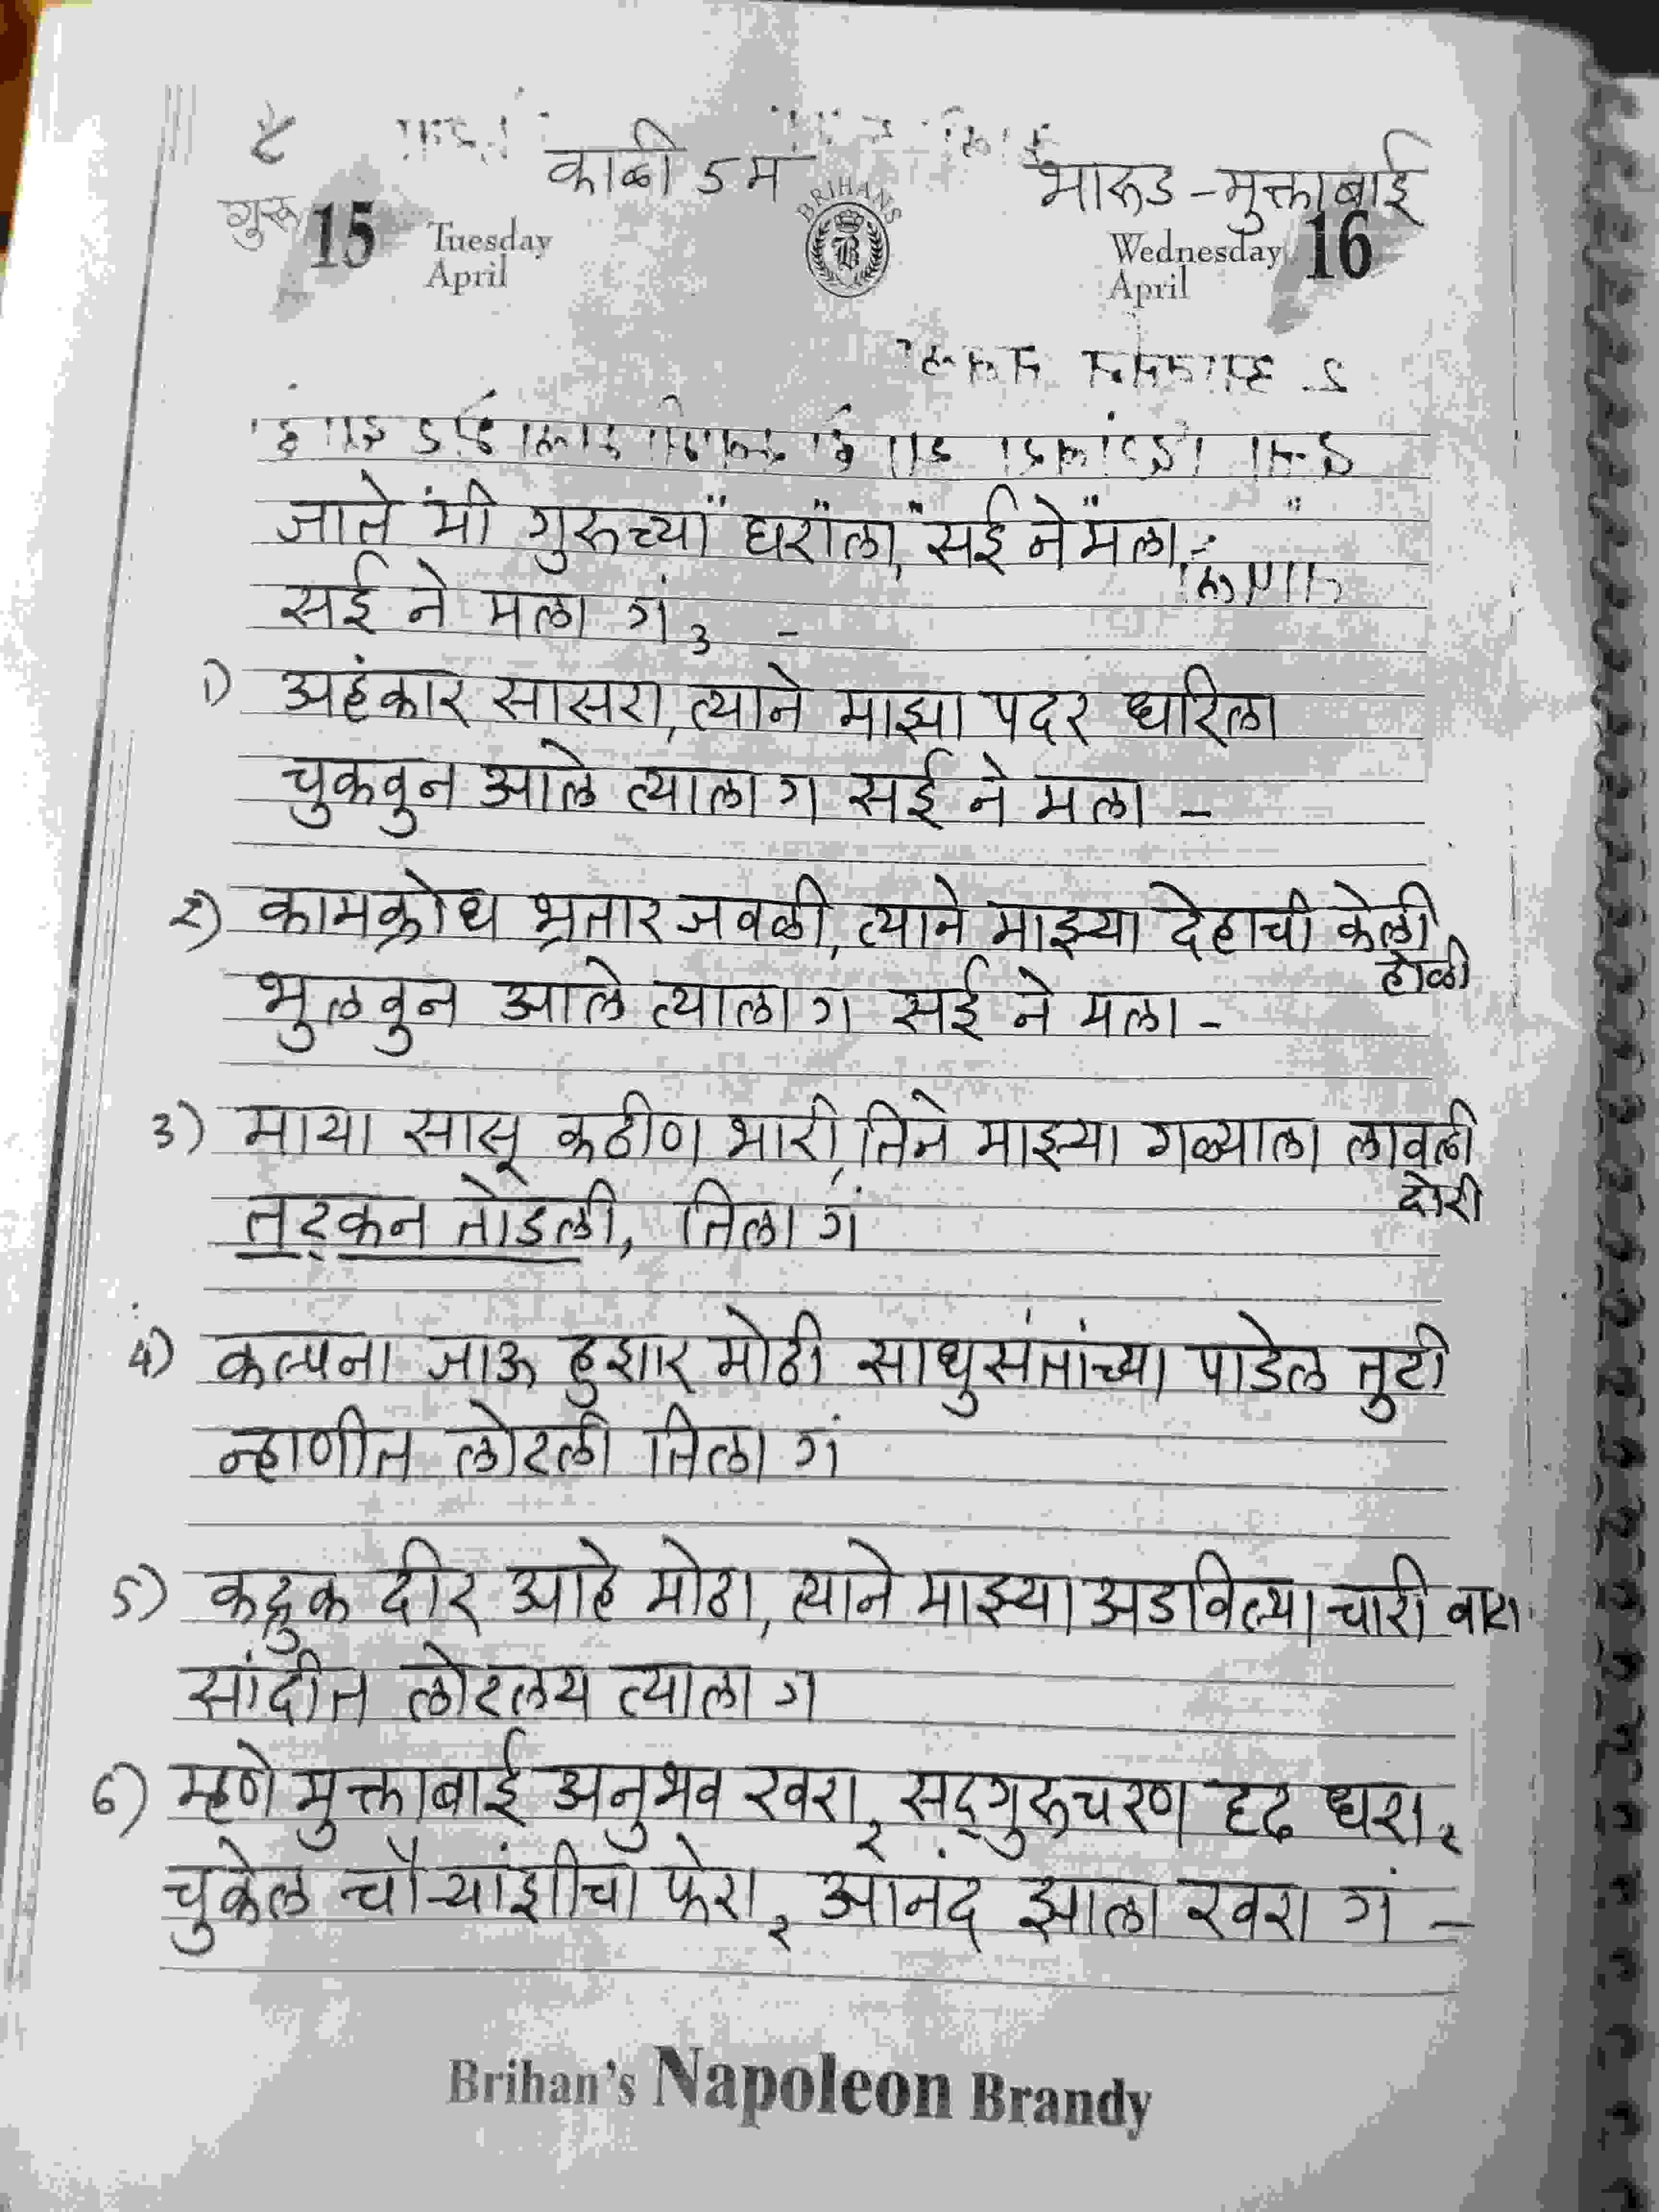 ८ काळी 5 म भारुड - मुक्ताबाई
गुरु 15 Tuesday April BRIHANS B Wednesday April 16
जाते मी गुरुच्या घराला, सई ने मला -
सई ने मला गं ३ -
1) अहंकार सासरा, त्याने माझा पदर धरिला
चुकवुन आले त्याला ग सई ने मला -
२) कामक्रोध भ्रतार जवळी, त्याने माझ्या देहाची केली
होळी
भुलवुन आले त्याला ग सई ने मला -
3) माया सासू कठीण भारी, तिने माझ्या गळ्याला लावली
दोरी
तट्कन तोडली, तिला गं
4) कल्पना जाऊ हुशार मोठी साधुसंतांच्या पाडेल तुटी
न्हाणीत लोटली तिला गं
5) कद्रुक दीर आहे मोठा, त्याने माझ्या अडविल्या चारी वाटा
सांदीत लोटलय त्याला ग
6) म्हणे मुक्ताबाई अनुभव खरा २ सद्‌गुरुचरण दृढ धरा २
चुकेल चौऱ्यांशीचा फेरा २ आनंद झाला खरा गं -
Brihan's Napoleon Brandy